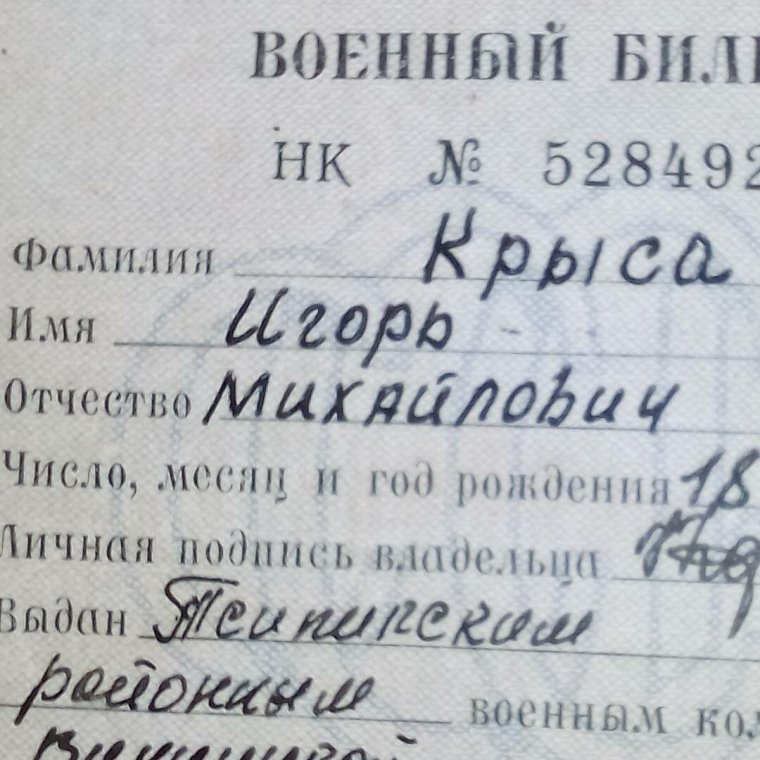 ВОЕННЫЙ БИЛЕ
НК № 528492
Фамилия Крыса
Имя Игорь
Отчество Михайлович
Число, месяц и год рождения 18
Личная подпись владельца
Выдан
районным военным ко